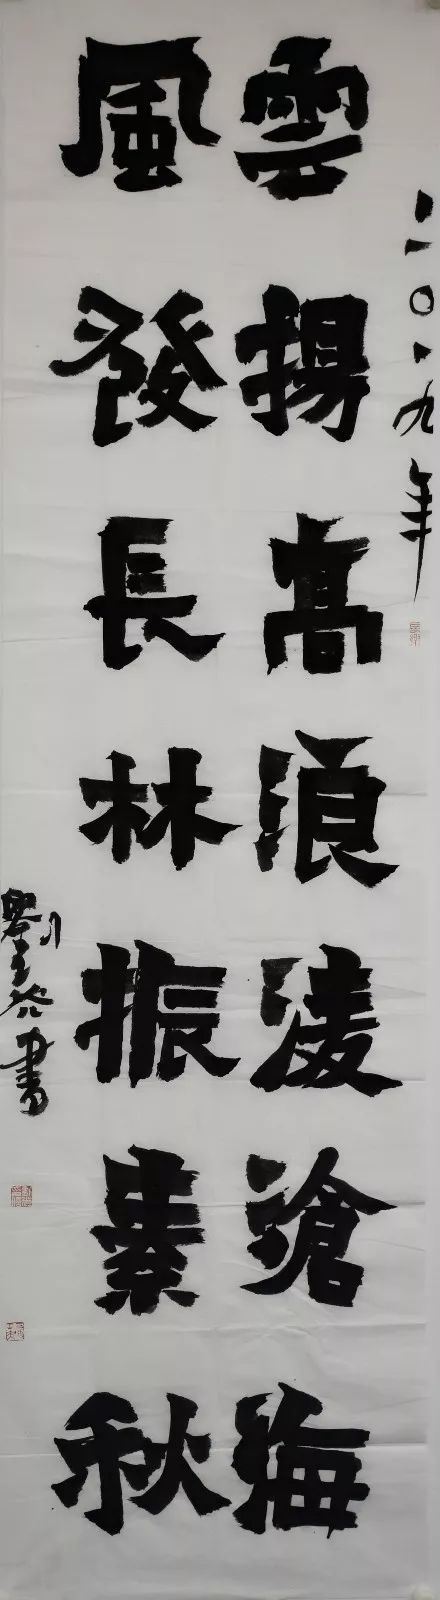 二〇一九年
雲揚高浪淩滄海
風發長林振素秋
劉
書